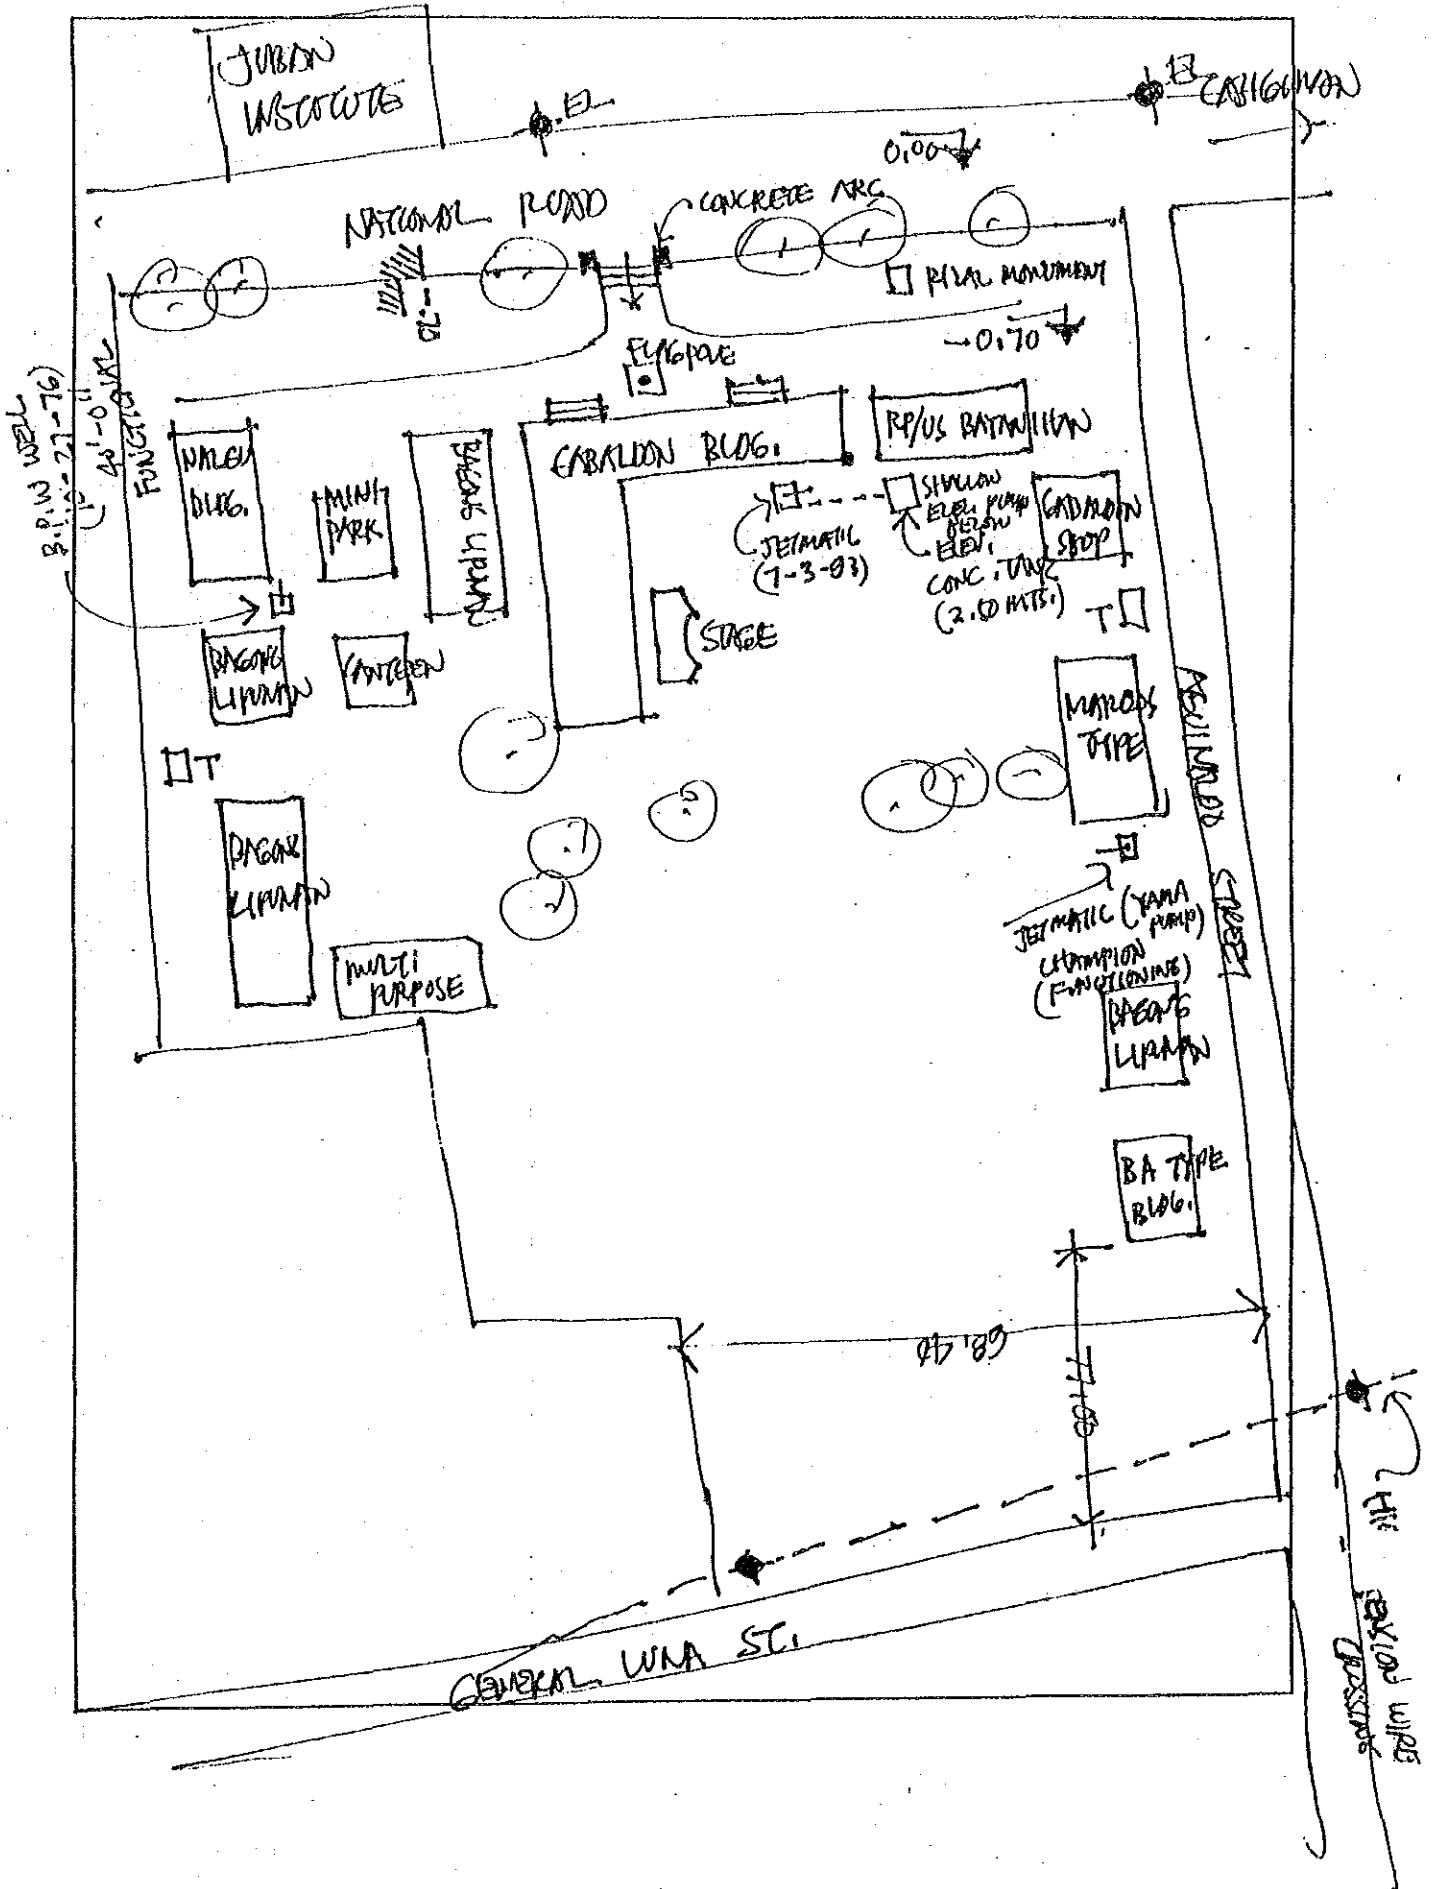 JUBAN
INSTITUTE
EL
EL
CASIGURAN
0.00
NATIONAL ROAD
CONCRETE ARC
RIZAL MONUMENT
-.70
-0.70
FLAGPOLE
B.P.W WELL
40'-0"
FUNCTIONAL
BLDG.
MINI
PARK
BAGONG LIPUNAN
GABALDON BLDG.
RP/US BATALLION
JETMATIC
(7-3-93)
SHALLOW
ELEV. PUMP
BELOW
ELEV.
CONC. TANK
(2.50 MTS.)
GABALDON
SHOP
T
STAGE
BAGONG
LIPUNAN
CANTEEN
T
MARCOS
TYPE
AGUINALDO STREET
BAGONG
LIPUNAN
MULTI
PURPOSE
JETMATIC (YAMA
PUMP)
CHAMPION
(FUNCTIONING)
BAGONG
LIPUNAN
BA TYPE
BLDG.
68.40
77.00
GENERAL LUNA ST.
WIRE
CROSSING